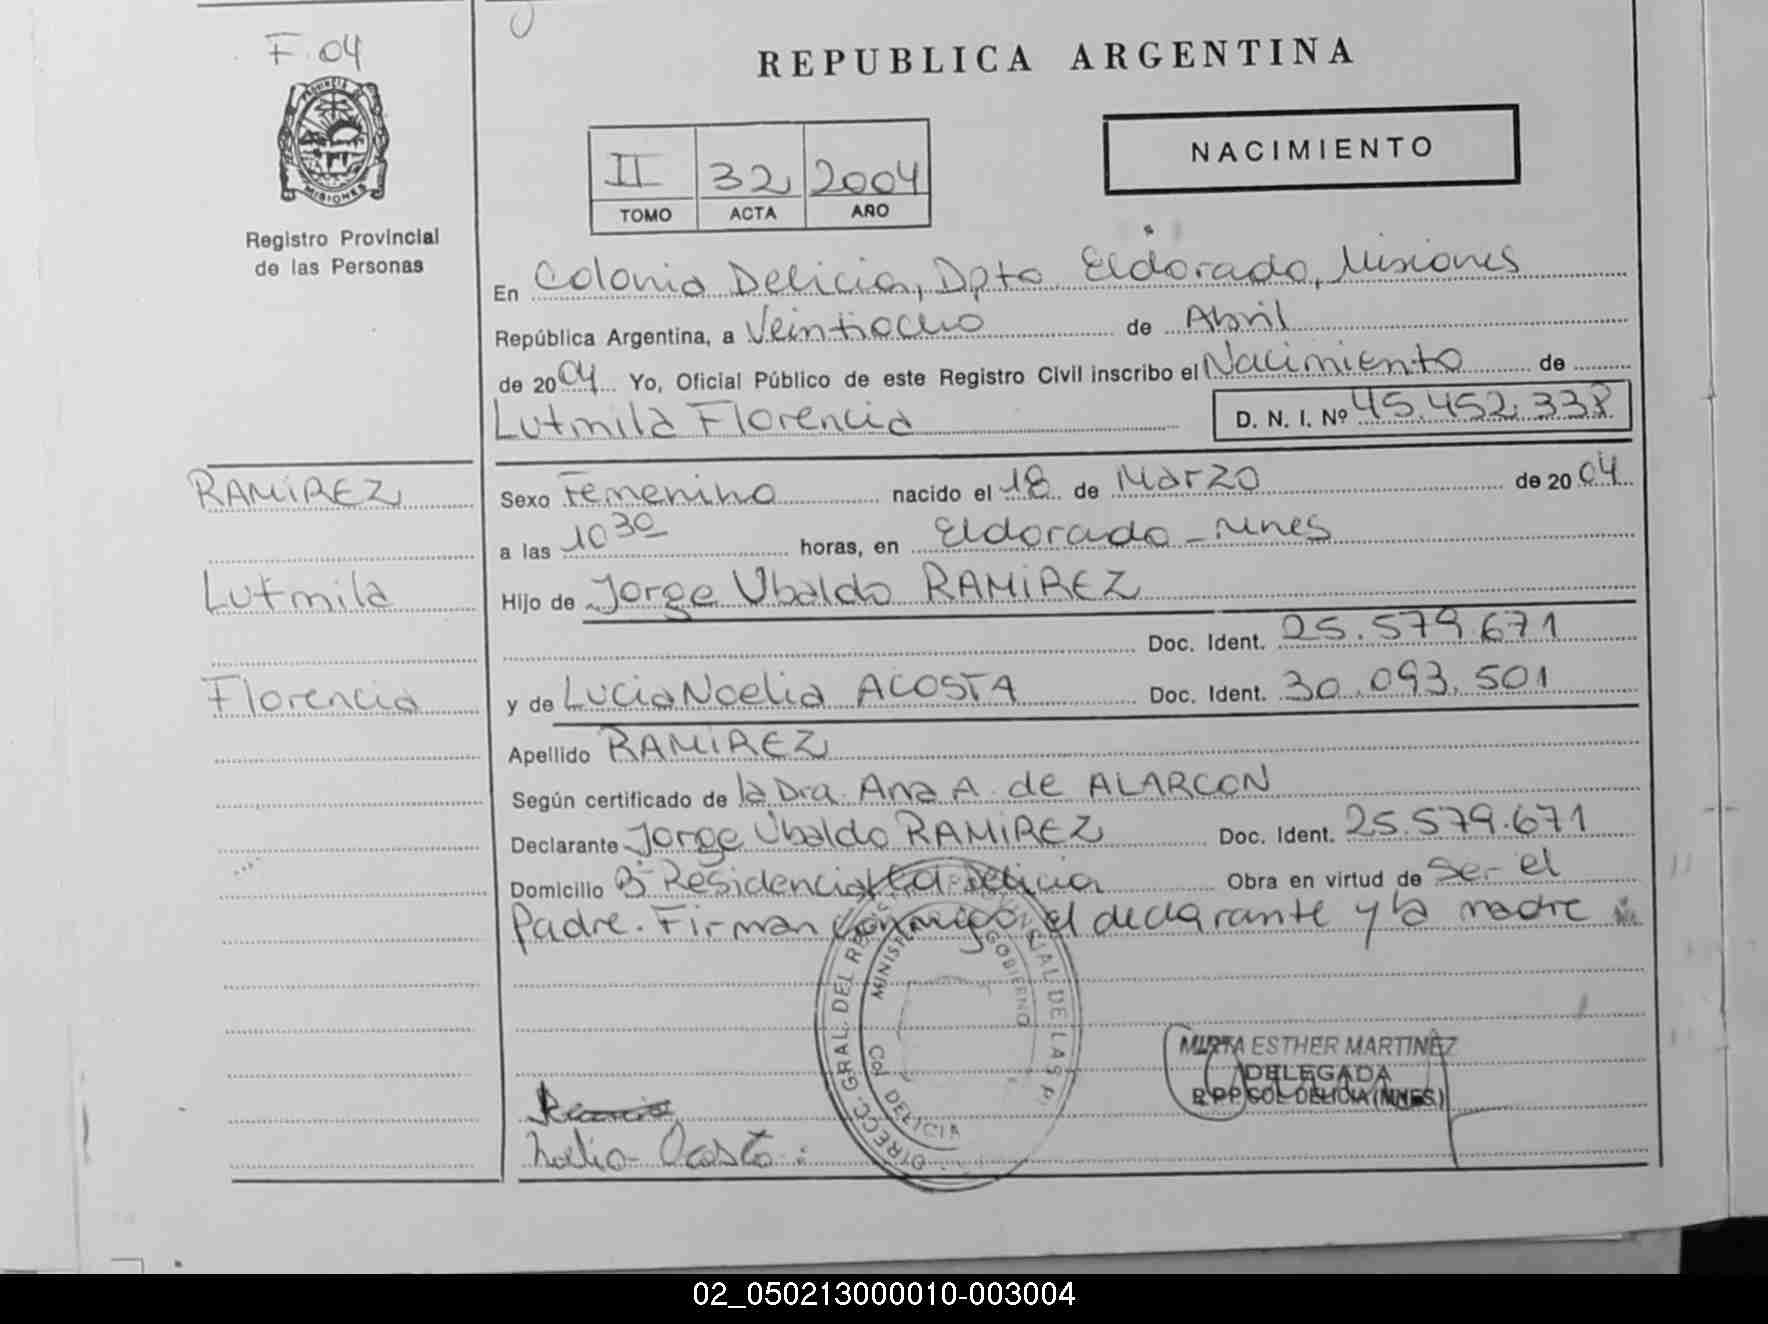 F. 04
REPUBLICA ARGENTINA
PROVINCIA DE
MISIONES
Registro Provincial
de las Personas
II 32 2004
TOMO ACTA AÑO
NACIMIENTO
En Colonia Delicia, Dpto Eldorado, Misiones
República Argentina, a Veintiocho de Abril
de 2004 Yo, Oficial Público de este Registro Civil inscribo el Nacimiento de
Lutmila Florencia D. N. I. Nº 45.452.338
RAMIREZ
Sexo Femenino nacido el 18 de Marzo de 2004
a las 10 30 horas, en Eldorado - Mnes
Lutmila
Hijo de Jorge Ubaldo RAMIREZ
Doc. Ident. 25.579.671
Florencia
y de Lucia Noelia ACOSTA Doc. Ident. 30.093.501
Apellido RAMIREZ
Según certificado de la Dra. Ana A. de ALARCON
Declarante Jorge Ubaldo RAMIREZ Doc. Ident. 25.579.671
Domicilio Bº Residencial Col. Delicia Obra en virtud de Ser el
Padre. Firman conmigo el declarante y la madre
DIRECC. GRAL. DEL DE LAS P.
GOBIERNO
Col DELICIA
MIRTA ESTHER MARTINEZ
DELEGADA
R.P.P COL. DELICIA (MNES.)
Noelia Acosta
02_050213000010-003004